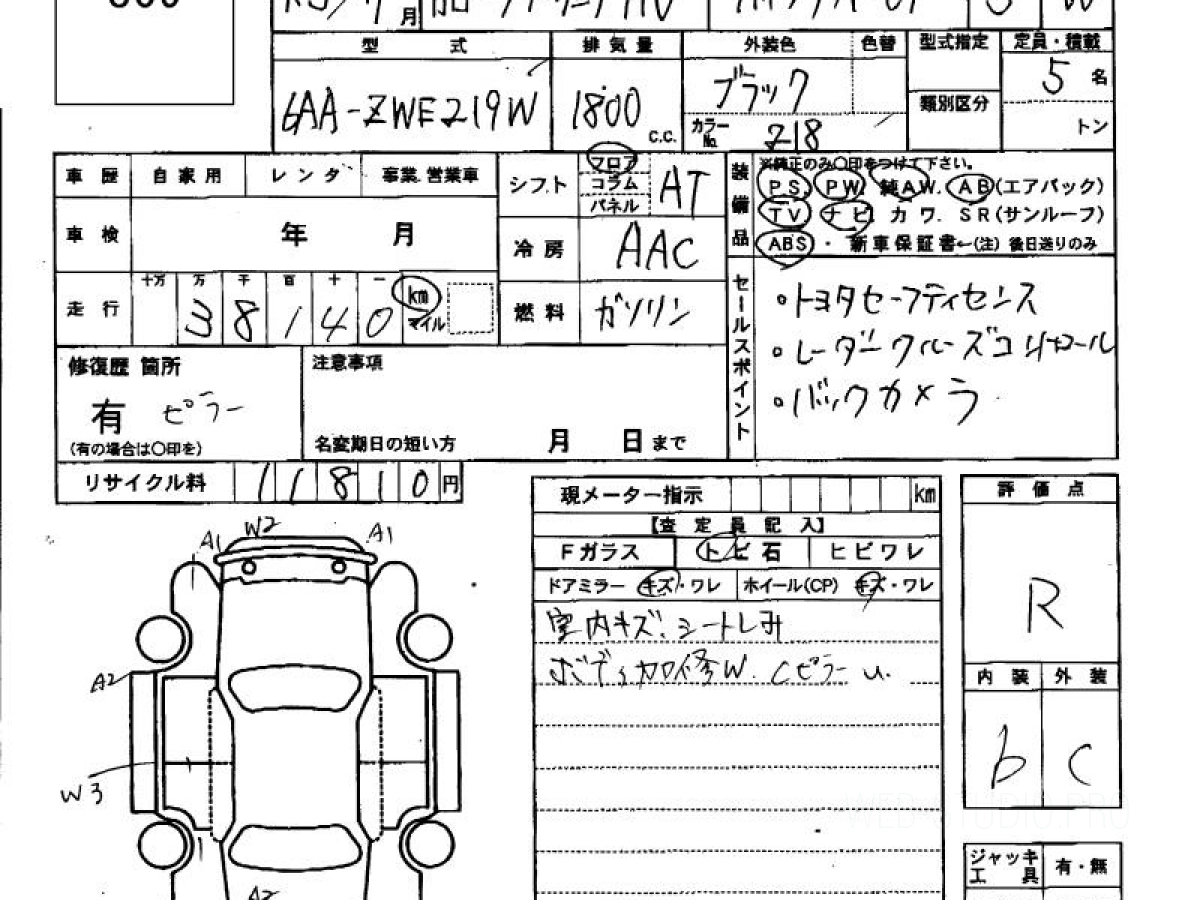 月
型 式 排気量 外装色 色替 型式指定 定員・積載
6AA-ZWE219W 1800 c.c. ブラック 5 名
カラーNo. 218 類別区分 トン
車歴 自家用 レンタ 事業.営業車 シフト フロア コラム パネル AT
車検 年 月 冷房 AAC
走行 十万 万 千 百 十 一 38140 km マイル 燃料 ガソリン
装備品 ※純正のみ〇印をつけて下さい。
PS. PW. 純AW. AB(エアバック)
TV. ナビ. カワ. SR(サンルーフ)
ABS・新車保証書←(注) 後日送りのみ
セールスポイント
・トヨタセーフティセンス
・レーダークルーズコントロール
・バックカメラ
修復歴 箇所
有 ピラー
(有の場合は〇印を)
注意事項
名変期日の短い方 月 日まで
リサイクル料 11810円
現メーター指示 km
【査定員記入】
Fガラス トビ石 ヒビワレ
ドアミラー キズ・ワレ ホイール(CP) キズ・ワレ
室内キズ、シートしみ
ボディ加修W. Cピラー u.
評価点
R
内装 外装
b C
ジャッキ 工具 有・無
A1 W2 A1
A2
W3
A2